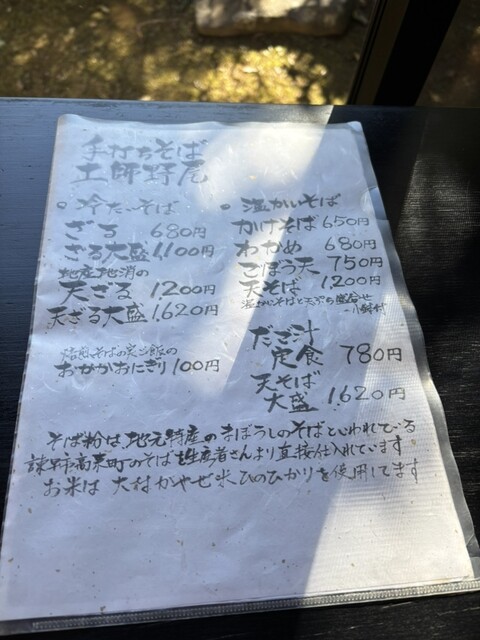 手打ちそば
土師野尾
○ 冷たいそば
ざる 680円
ざる大盛 1,100円
地産地消の
天ざる 1,200円
天ざる大盛 1,620円
焙煎そばの実ご飯の
おかかおにぎり 100円
○ 温かいそば
かけそば 650円
わかめ 680円
ごぼう天 750円
天そば 1,200円
温かいそばと天ぷら盛合せ
小鉢付
だご汁
定食 780円
天そば
大盛 1,620円
そば粉は、地元特産のまぼろしのそばといわれている
諫早市高来町のそばを生産者さんより直接仕入れています
お米は 大村かやぜ米ひのひかりを使用してます